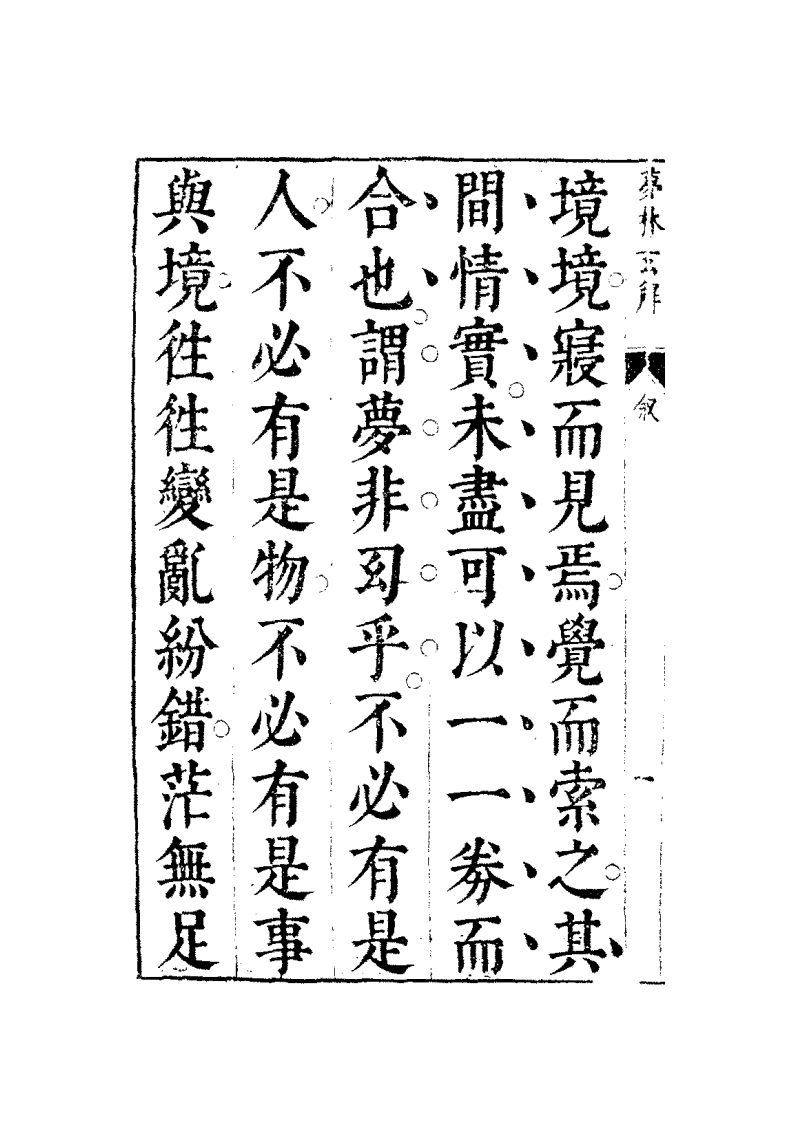 夢林玄解
叙
一
境境寢而見焉覺而索之其
間情實未盡可以一一券而
合也謂夢非幻乎不必有是
人不必有是物不必有是事
與境徃徃變亂紛錯茫無足